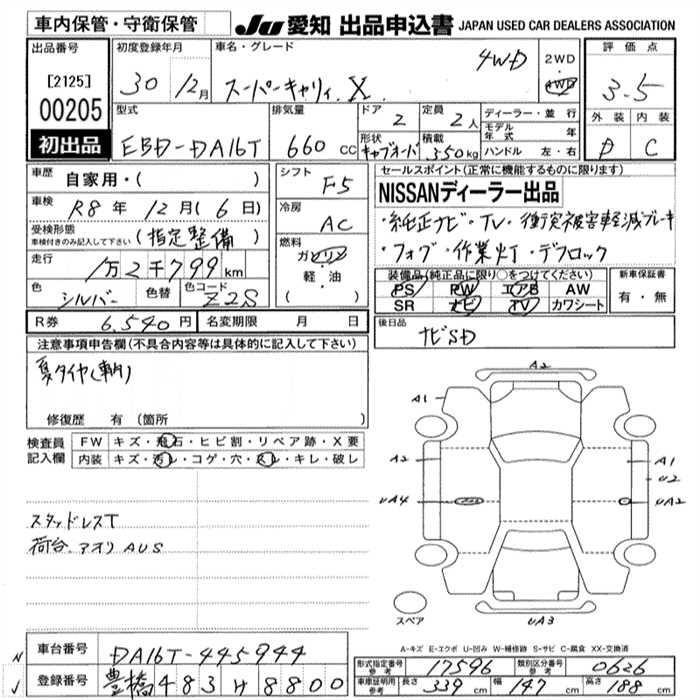 車内保管・守衛保管
JU 愛知 出品申込書 JAPAN USED CAR DEALERS ASSOCIATION
出品番号 初度登録年月 車名・グレード 評価点
[2125] 30 12月 スーパーキャリィ X 4WD 2WD 4WD 3.5
00205
型式 排気量 ドア 定員 ディーラー・並行 外装 内装
初出品 EBD-DA16T 660cc 2 2人 モデル年式 年
形状 積載 ハンドル 左・右 D C
キャブオーバ 350kg
車歴 自家用・( ) シフト F5 セールスポイント(正常に機能するものに限ります)
NISSANディーラー出品
車検 R8年 12月(6日) 冷房 AC
・純正ナビ・TV・衝突被害軽減ブレーキ
受検形態 車検付きのみ記入して下さい (指定整備) 燃料 ガソリン
・フォグ・作業灯・デフロック
走行 1万2千799km 軽・油
装備品(純正品に限り○をつけてください) 新車保証書
色 シルバー 色替 色コード Z2S ( )
PS PW エアB AW 有・無
SR ナビ TV カワシート
R券 6,540円 名変期限 月 日 後日品
ナビSD
注意事項申告欄(不具合内容等は具体的に記入して下さい)
夏タイヤ(車内)
修復歴 有(箇所
検査員記入欄 FW キズ・飛石・ヒビ割・リペア跡・X要
内装 キズ・汚レ・コゲ・穴・スレ・キレ・破レ
A2
A1
A2 A1
U2
UA4 UA2
スタッドレスT
荷台、アオリ AUS
スペア UA3
A-キズ E-エクボ U-凹み W-補修跡 S-サビ C-腐食 XX-交換済
N 車台番号 DA16T-445944
形式指定番号 参考 17596 類別区分番号 参考 0626
J 登録番号 豊橋 483 H 8800
車庫証明用 参考 長さ 339cm 幅 147cm 高さ 188cm